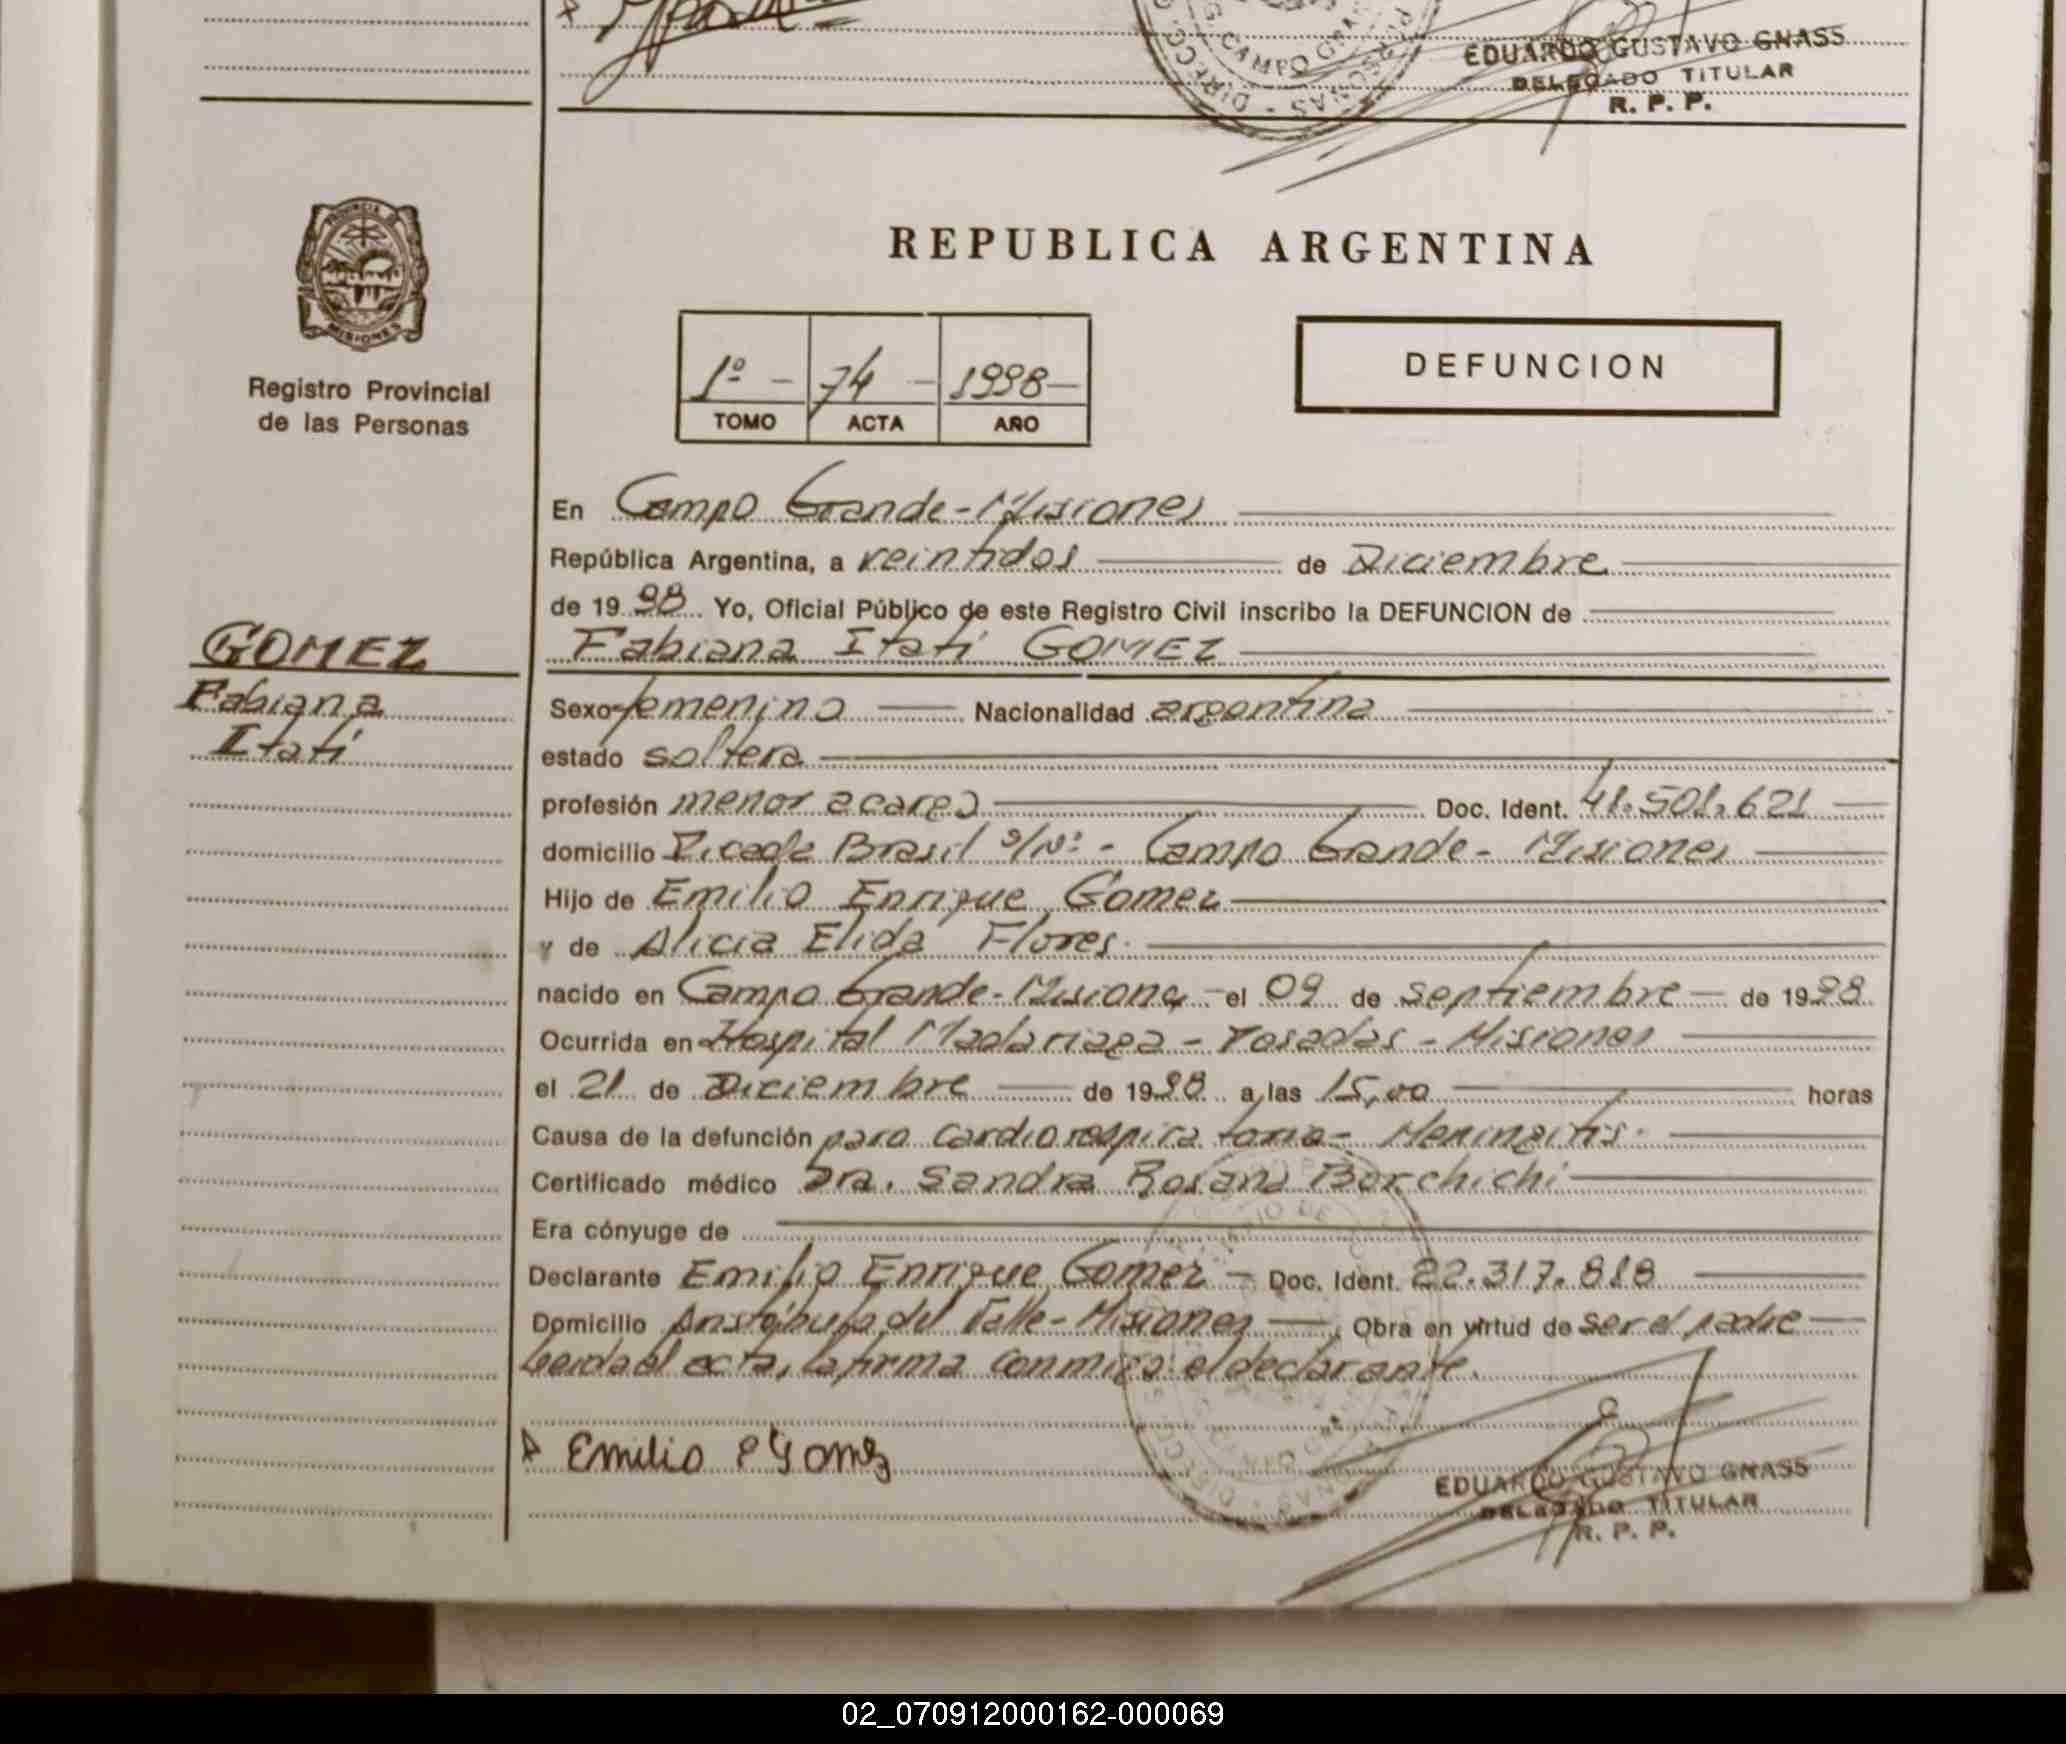 EDUARDO GUSTAVO GNASS
DELEGADO TITULAR
R. P. P.
PROVINCIA DE
MISIONES
Registro Provincial
de las Personas
REPUBLICA ARGENTINA
1º - 74 - 1998 -
TOMO ACTA AÑO
DEFUNCION
En Campo Grande - Misiones
República Argentina, a veintidos de Diciembre
de 19 98 Yo, Oficial Público de este Registro Civil inscribo la DEFUNCION de
GOMEZ
Fabiana Itatí GOMEZ
Fabiana
Itatí
Sexo femenino Nacionalidad argentina
estado soltera
profesión menor a cargo Doc. Ident. 41.501.621
domicilio Picada Brasil s/Nº - Campo Grande - Misiones
Hijo de Emilio Enrique Gomez
y de Alicia Elida Flores.
nacido en Campo Grande - Misiones - el 09 de septiembre de 1998
Ocurrida en Hospital Madariaga - Posadas - Misiones
el 21 de Diciembre de 1998 a las 15,00 horas
Causa de la defunción paro cardiorespiratorio - Meningitis.
Certificado médico Dra. Sandra Rosana Borchichi
Era cónyuge de
Declarante Emilio Enrique Gomez - Doc. Ident. 22.317.818
Domicilio Aristóbulo del Valle - Misiones Obra en virtud de ser el padre
Leida el acta, la firma conmigo el declarante.
Emilio E Gomez
EDUARDO GUSTAVO GNASS
DELEGADO TITULAR
R. P. P.
02_070912000162-000069